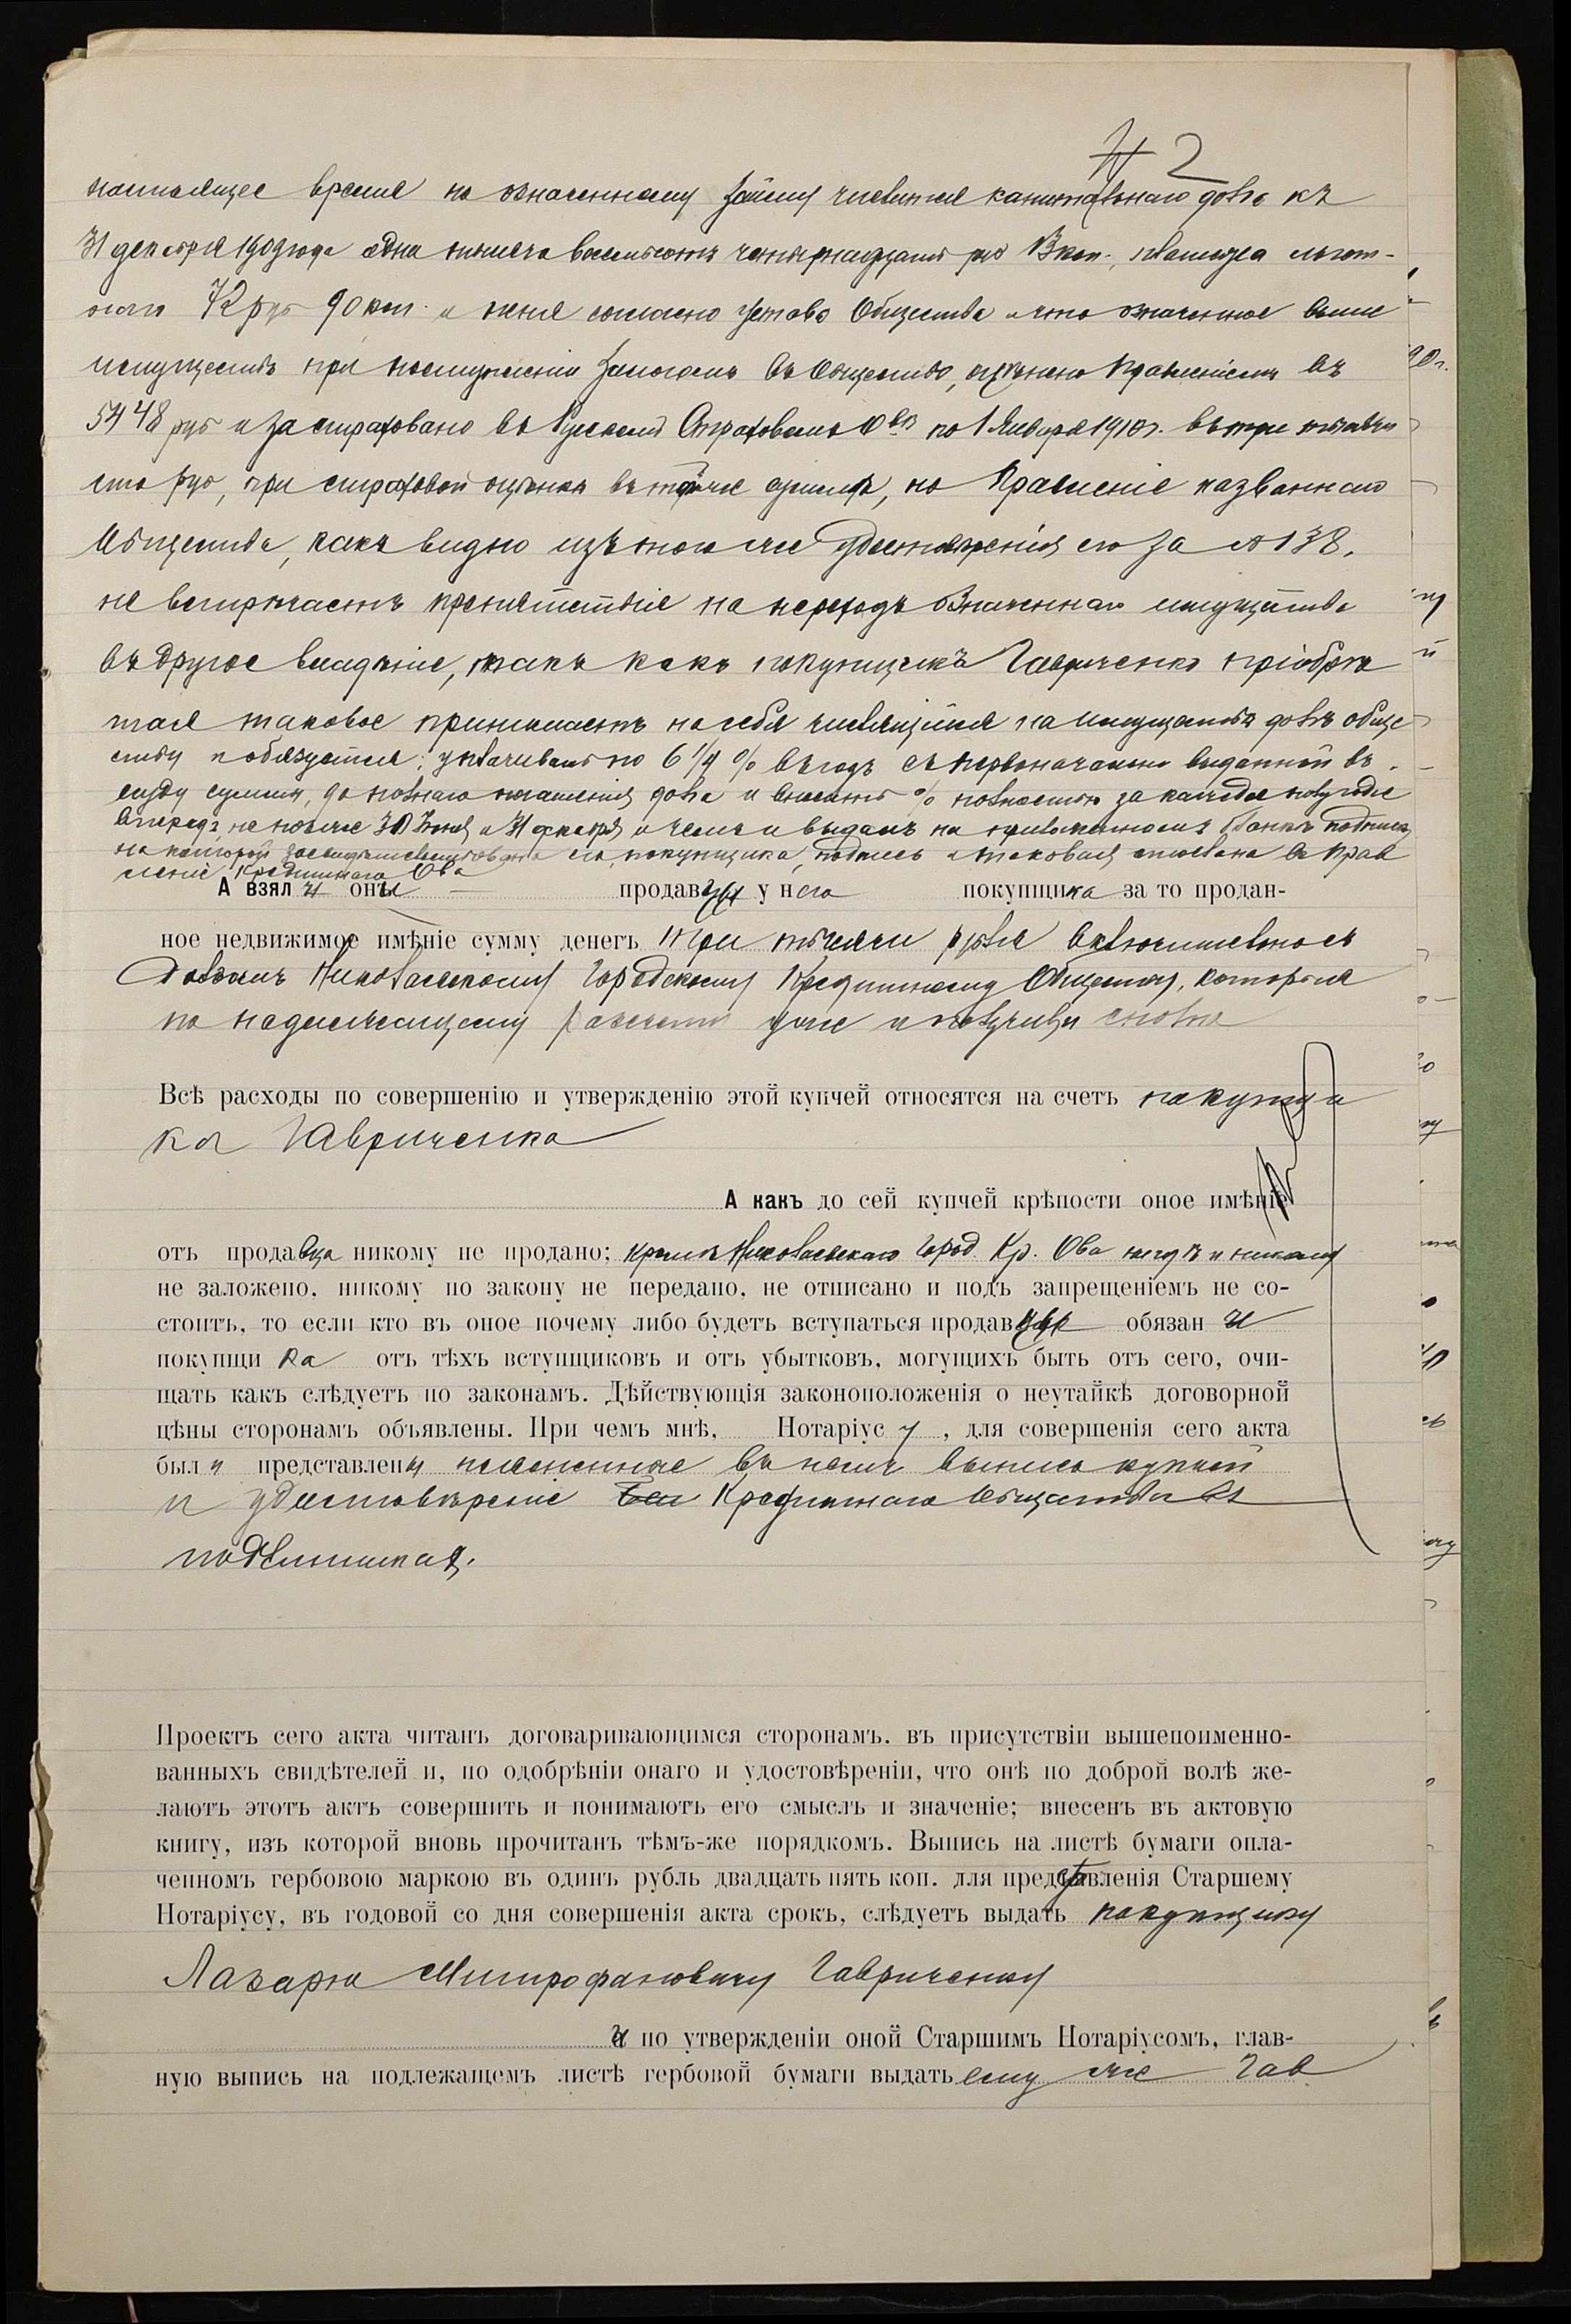 № 2
настоящее время по означенному займу числится капитальнаго долга къ
31 декабря 1909 года одна тысяча восемьсотъ четырнадцать руб 3 коп., платежа льгот-
наго руб 90 коп. и пеня согласно устава Общества и что означенное выше
имущество при поступленіи залогомъ въ Общество, оцѣнено Правленіемъ въ
5448 руб и застраховано въ Русскомъ Страховомъ Овѣ по 1 Января 1910 г. въ три тысячи
сто руб, при страховой оцѣнкѣ въ той же суммѣ, но Правленіе названнаго
Общества, какъ видно изъ того же удостовѣренія его за № 138,
не встрѣчаетъ препятствія на переходъ означеннаго имущества
въ другое владѣніе, такъ какъ покупщикъ Гавриченко пріобрѣ
тая таковое принимаетъ на себя числящійся на имуществѣ долгъ обще
ству и обязуется: уплачивать по 6 1/4 % въ годъ съ первоначально выданной въ
ссуду суммы, до полнаго погашенія долга и вносить % полностью за каждое полугодіе
впередъ не позже 30 Іюня и 31 декабря и въ чемъ и выдалъ на приложенномъ бланкѣ подписку
на которой засвидѣтельствована его, покупщика, подпись и таковая отослана въ Прав
леніе Кредитнаго Ова
А взяли оны продавцы у него покупщика за то продан-
ное недвижимое имѣніе сумму денегъ три тысячи рубля включительно съ
долгомъ Николаевскому Городскому Кредитному Обществу, которыя
по надлежащему разсчету уже и получены сполна
Всѣ расходы по совершенію и утвержденію этой купчей относятся на счетъ покупщи
ка Гавриченка
А какъ до сей купчей крѣпости оное имѣніе
отъ продавца никому не продано; кромѣ Николаевскаго Город. Кр. Ова нигдѣ и никому
не заложено, никому по закону не передано, не отписано и подъ запрещеніемъ не со-
стоитъ, то если кто въ оное почему либо будетъ вступаться продавцы обязаны
покупщика отъ тѣхъ вступщиковъ и отъ убытковъ, могущихъ быть отъ сего, очи-
щать какъ слѣдуетъ по законамъ. Дѣйствующія законоположенія о неутайкѣ договорной
цѣны сторонамъ объявлены. При чемъ мнѣ, Нотаріусу, для совершенія сего акта
были представлены поясненные въ немъ выпись купчей
и удостовѣреніе Кредитнаго Общества въ
подлинникахъ.
Проектъ сего акта читанъ договаривающимся сторонамъ. въ присутствіи вышепоименно-
ванныхъ свидѣтелей и, по одобрѣніи онаго и удостовѣреніи, что онѣ по доброй волѣ же-
лаютъ этотъ актъ совершить и понимаютъ его смыслъ и значеніе; внесенъ въ актовую
книгу, изъ которой вновь прочитанъ тѣмъ-же порядкомъ. Выпись на листѣ бумаги опла-
ченномъ гербовою маркою въ одинъ рубль двадцать пять коп. для представленія Старшему
Нотаріусу, въ годовой со дня совершенія акта срокъ, слѣдуетъ выдать покупщику
Лазарю Митрофановичу Гавриченку
и по утвержденіи оной Старшимъ Нотаріусомъ, глав-
ную выпись на подлежащемъ листѣ гербовой бумаги выдать ему же Гав